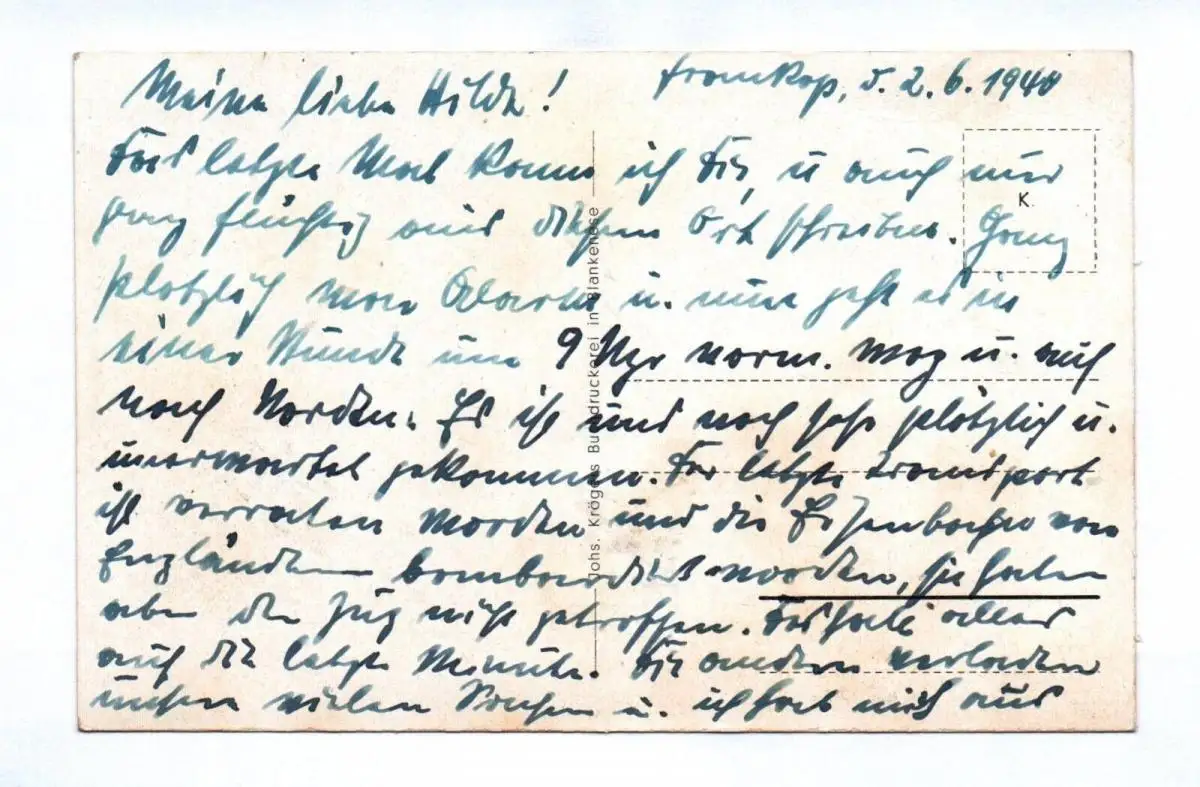 Meine liebe Hilde!
Fromkop, d. 2.6.1940
Das letzte Mal kann ich Dir, u auch nur
ganz flüchtig aus diesem Ort schreiben. Ganz
plötzlich war Alarm u. nun geht es in
einer Stunde um 9 Uhr vorm. weg u. auch
nach Norden. Es ist und noch sehr plötzlich u.
unerwartet gekommen. Der letzte Transport
ist verraten worden und die Eisenbahn von
Engländern bombardiert worden, sie haben
aber den Zug nicht getroffen. Deshalb alles
auf die letzte Minute. Die andern verladen
unsere vielen Sachen u. ich hab mich aus
K.
Johs. Krögers Buchdruckerei in Blankenese